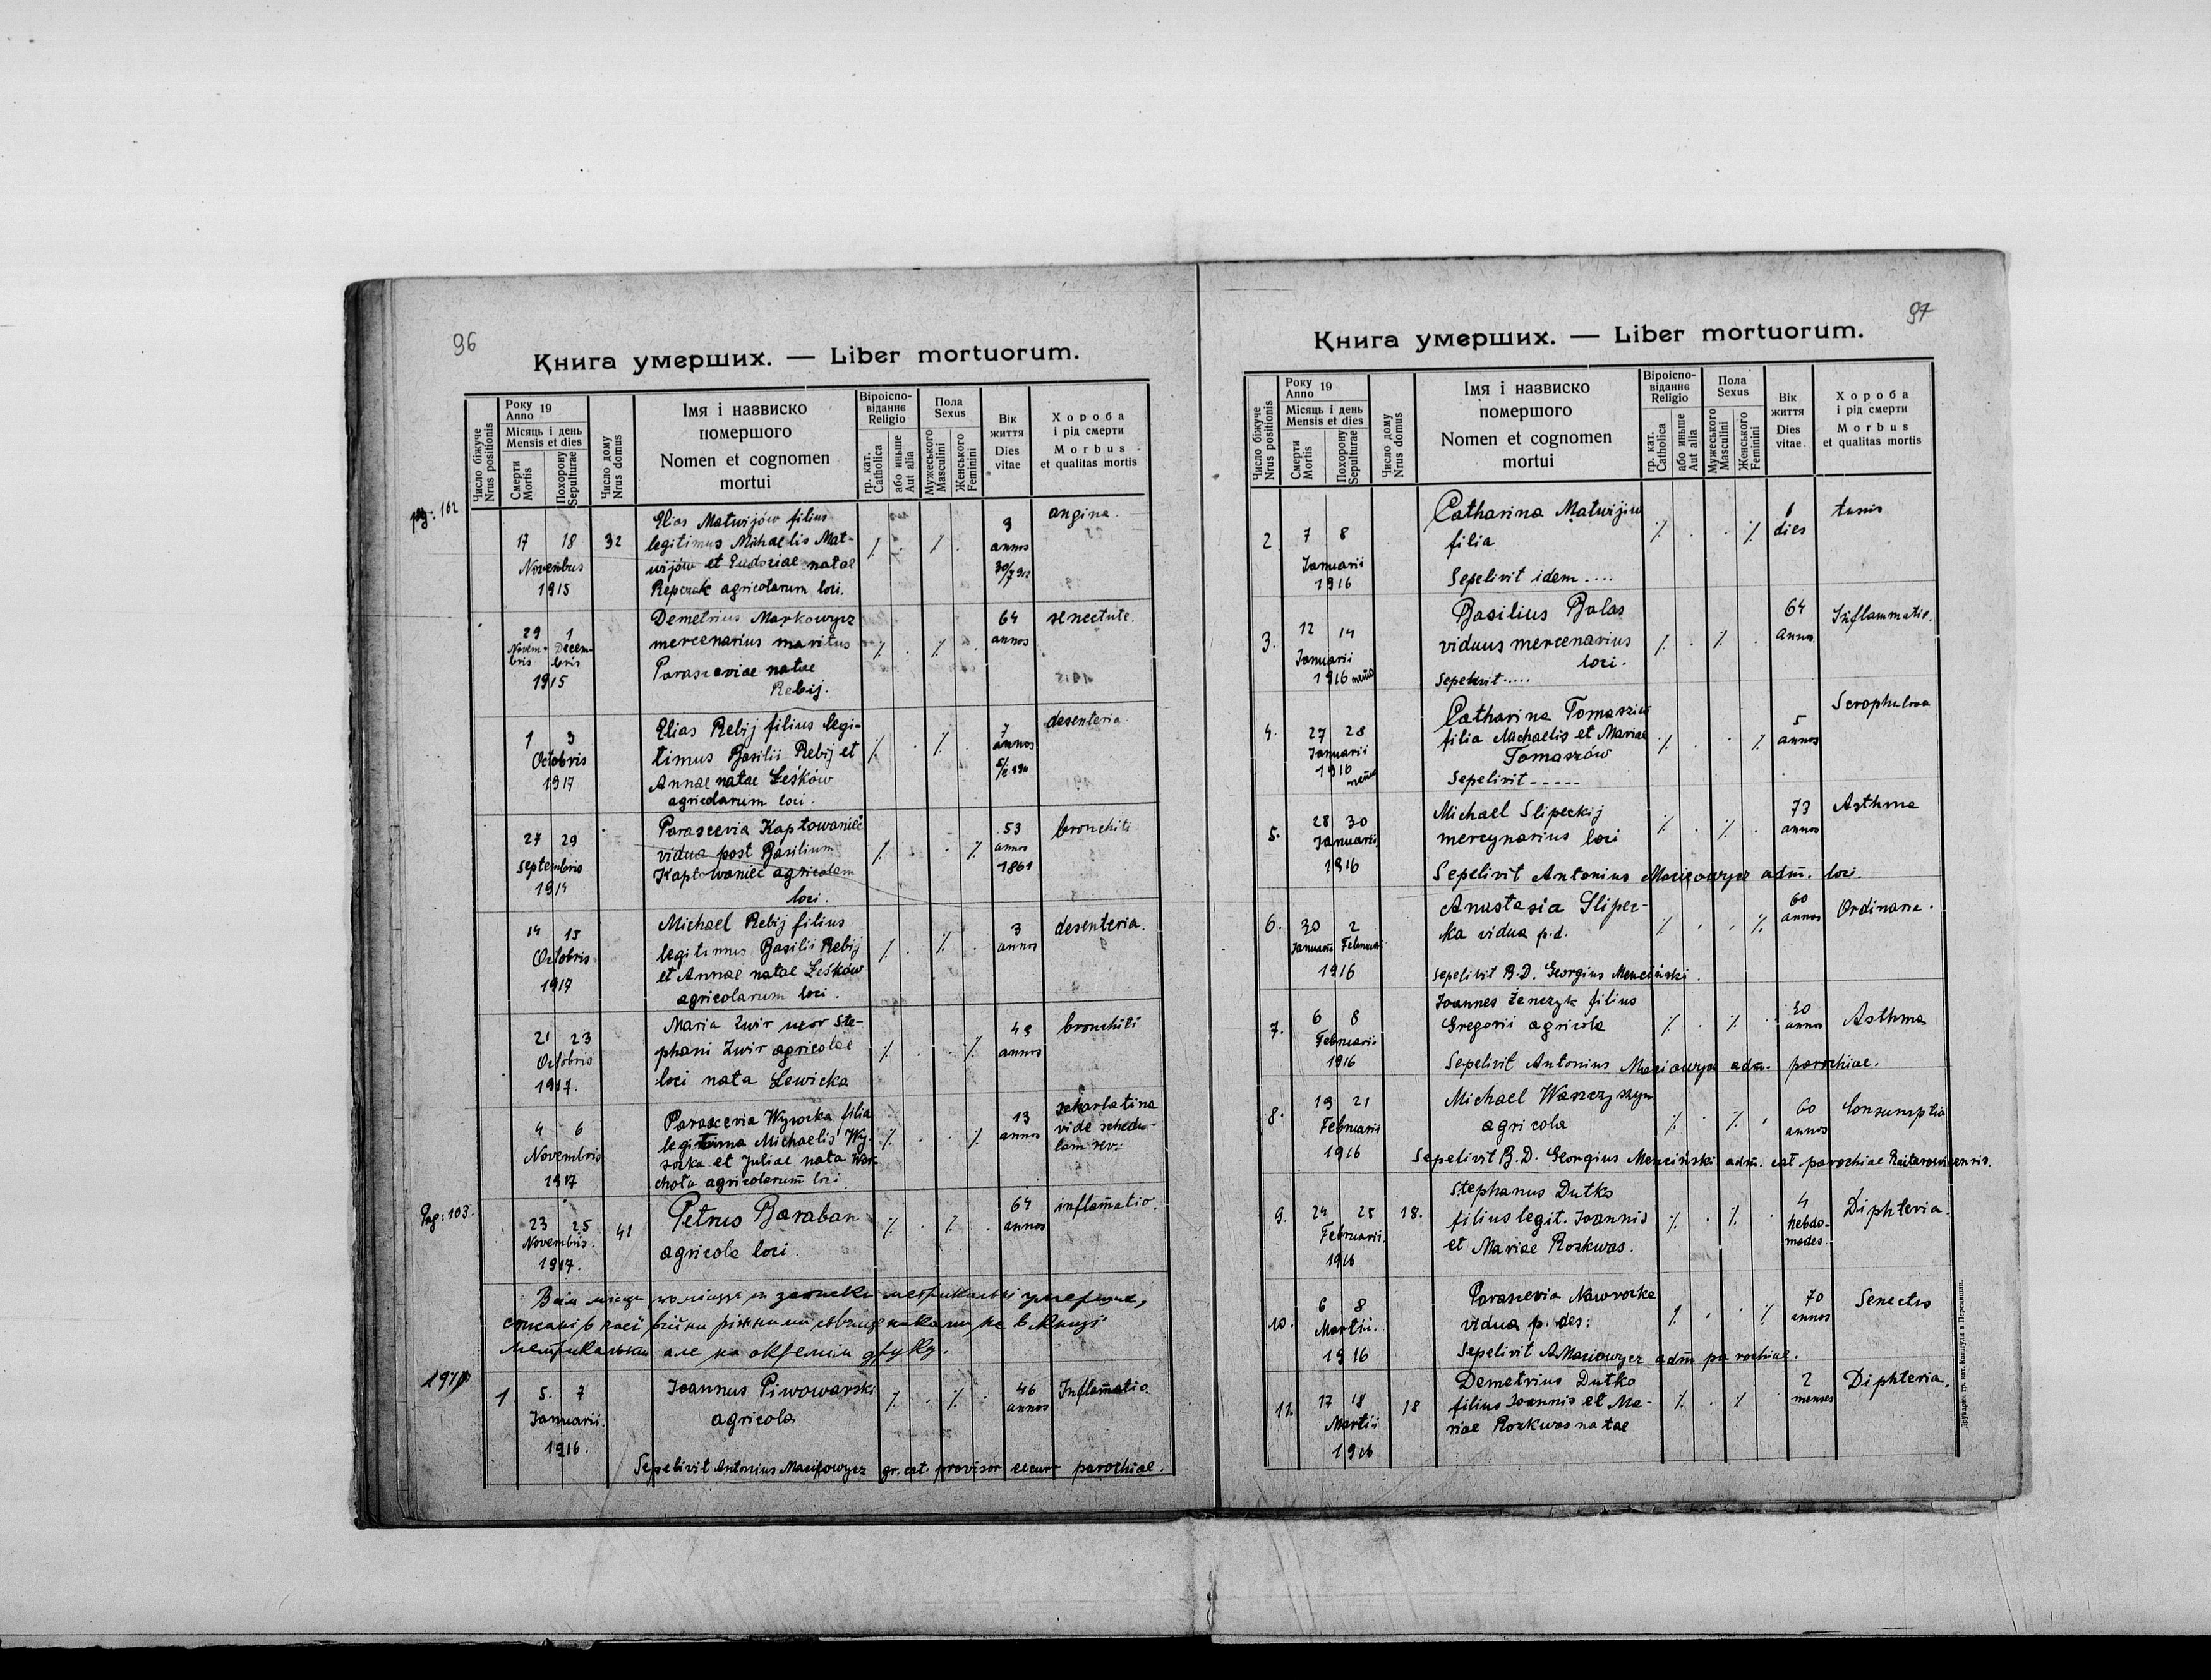 96
Книга умерших. — Liber mortuorum.
Число біжуче
Nrus positionis
Року 19
Anno
Місяць і день
Mensis et dies
Смерти
Mortis
Похорону
Sepulturae
Число дому
Nrus domus
Імя і назвиско
помершого
Nomen et cognomen
mortui
Віроіспо-
віданнє
Religio
гр. кат.
Catholica
або иньше
Aut alia
Пола
Sexus
Мужеського
Masculini
Женського
Feminini
Вік
життя
Dies
vitae
Хороба
і рід смерти
Morbus
et qualitas mortis
pag. 102
17 18 32
Novembris
1915
Elias Matwijów filius
legitimus Michaelis Mat-
wijów et Eudoxiae natae
Repczak agricolarum loci.
3
annos
30/7 912
angina.
29 1
Novem- Decem-
bris bris
1915
Demetrius Markowycz
mercenarius maritus
Parasceviae natae
Rebij.
64
annos
senectute.
1 3
Octobris
1917
Elias Rebij filius legi-
timus Basilii Rebij et
Annae natae Leśków
agricolarum loci.
7
annos
desenteria.
27 29
Septembris
1914
Parascevia Kaptowanieć
vidua post Basilium
Kaptowanieć agricolam
loci.
53
annos
1861
bronchiti
14 15
Octobris
1917
Michael Rebij filius
legitimus Basilii Rebij
et Annae natae Leśków
agricolarum loci.
3
annos
desenteria.
21 23
Octobris
1917.
Maria Zwir uxor Ste-
phani Zwir agricolae
loci nata Lewicka
49
annos
bronchiti
4 6
Novembris
1917
Parascevia Wysocka filia
legitima Michaelis Wy-
socka et Juliae nata War-
chola agricolarum loci.
13
annos
schorlatina
vide schedu-
lam rev:
Pag: 103.
23 25 41
Novembris.
1917.
Petrus Baraban
agricola loci.
64
annos
inflamatio.
записки метрикальні умерших,
війни ріжними священиками не в книзі
метрикальній але на окремім друку.
1. 5. 7
Januarii.
1916.
Joannus Piwowarski
agricola
46
annos
Inflamatio.
Sepelivit Antonius Maciowycz gr. cat. provisor excurr parochiae.
97
Книга умерших. — Liber mortuorum.
Число біжуче
Nrus positionis
Року 19
Anno
Місяць і день
Mensis et dies
Смерти
Mortis
Похорону
Sepulturae
Число дому
Nrus domus
Імя і назвиско
помершого
Nomen et cognomen
mortui
Віроіспо-
віданнє
Religio
гр. кат.
Catholica
або иньше
Aut alia
Пола
Sexus
Мужеського
Masculini
Женського
Feminini
Вік
життя
Dies
vitae
Хороба
і рід смерти
Morbus
et qualitas mortis
2 7 8
Januarii
1916
Catharina Matwijiw
filia
Sepelivit idem....
6
dies
tussis
3. 12 14
Januarii
1916
Basilius Balas
viduus mercenarius
loci.
Sepelivit.....
64
annos
Inflammatio.
4. 27 28
Januarii
1916
Catharina Tomasziw
filia Michaelis et Mariae
Tomaszów
Sepelivit-----
5
annos
Scrophulosa
5. 28 30
Januarii
1916
Michael Slipeckij
mercynarius loci
Sepelivit Antonius Maciowycz adm. loci.
73
annos
Asthma
6. 30 2
Januarii Februarii
1916
Anastasia Slipec-
ka vidua p.d.
Sepelivit B.D. Georgius Menciński.
60
annos
Ordinaria.
7. 6 8
Februarii
1916
Joannes Zenczyk filius
Gregorii agricola
Sepelivit Antonius Maciowycz adm. parochiae.
20
annos
Asthma
8. 19 21
Februarii
1916
Michael Waszczyszyn
agricola
Sepelivit B.D. Georgius Menciński adm. cat. parochiae Raitarowicensis.
60
annos
Consumptio
9. 24 25 18.
Februarii.
1916
Stephanus Dutko
filius legit. Joannis
et Mariae Rozkwas.
4
hebdo-
mades.
Diphteria.
10. 6 8
Martii.
1916
Parascevia Naworocka
vidua p. des:
Sepelivit A Maciowycz adm parochiae.
70
annos
Senectus
11. 17 18 18
Martii
1916
Demetrius Dutko
filius Joannis et Ma-
riae Rozkwas natae
2
menses
Diphteria.